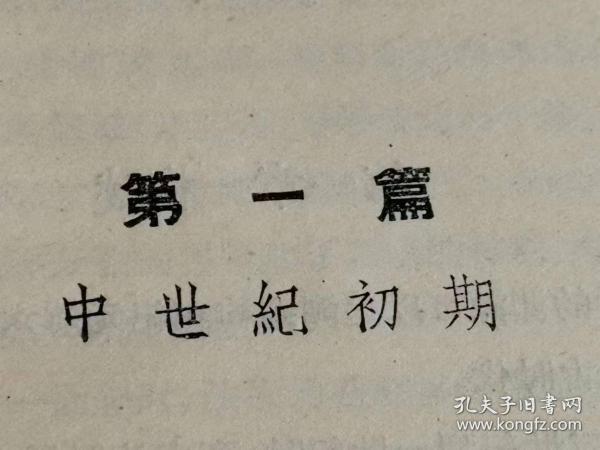 第一篇
中世紀初期
孔夫子旧書网
www.kongfz.com